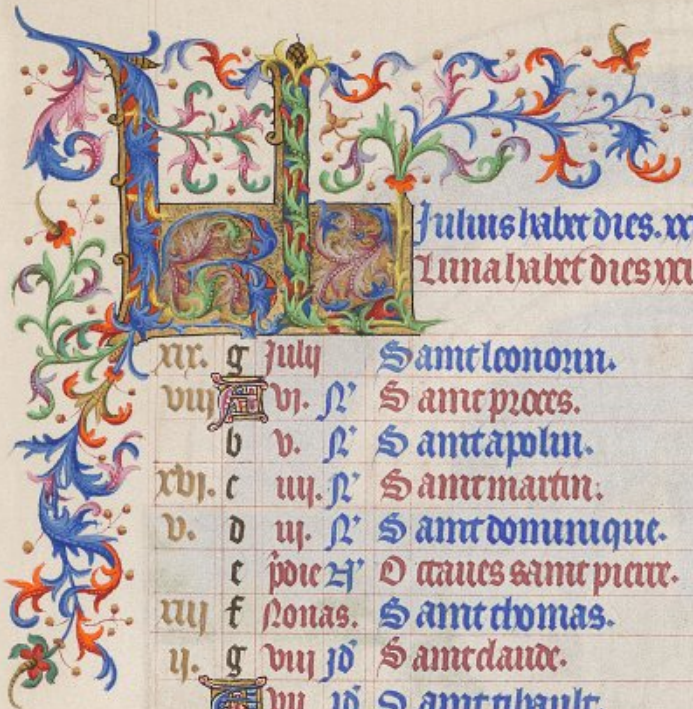 KL
Julius habet dies. xx
Luna habet dies xx
xix. g Julij Saint leonorin.
viij A vj. N' Saint proces.
b v. N' Saint apolin.
xvj. c iiij. N' Saint martin.
v. d iij. N' Saint dominique.
e pdie N' Octaues saint pierre.
xiij f Nonas. Saint thomas.
ij. g viij jd' Saint claude.
A vij jd' Saint thibault